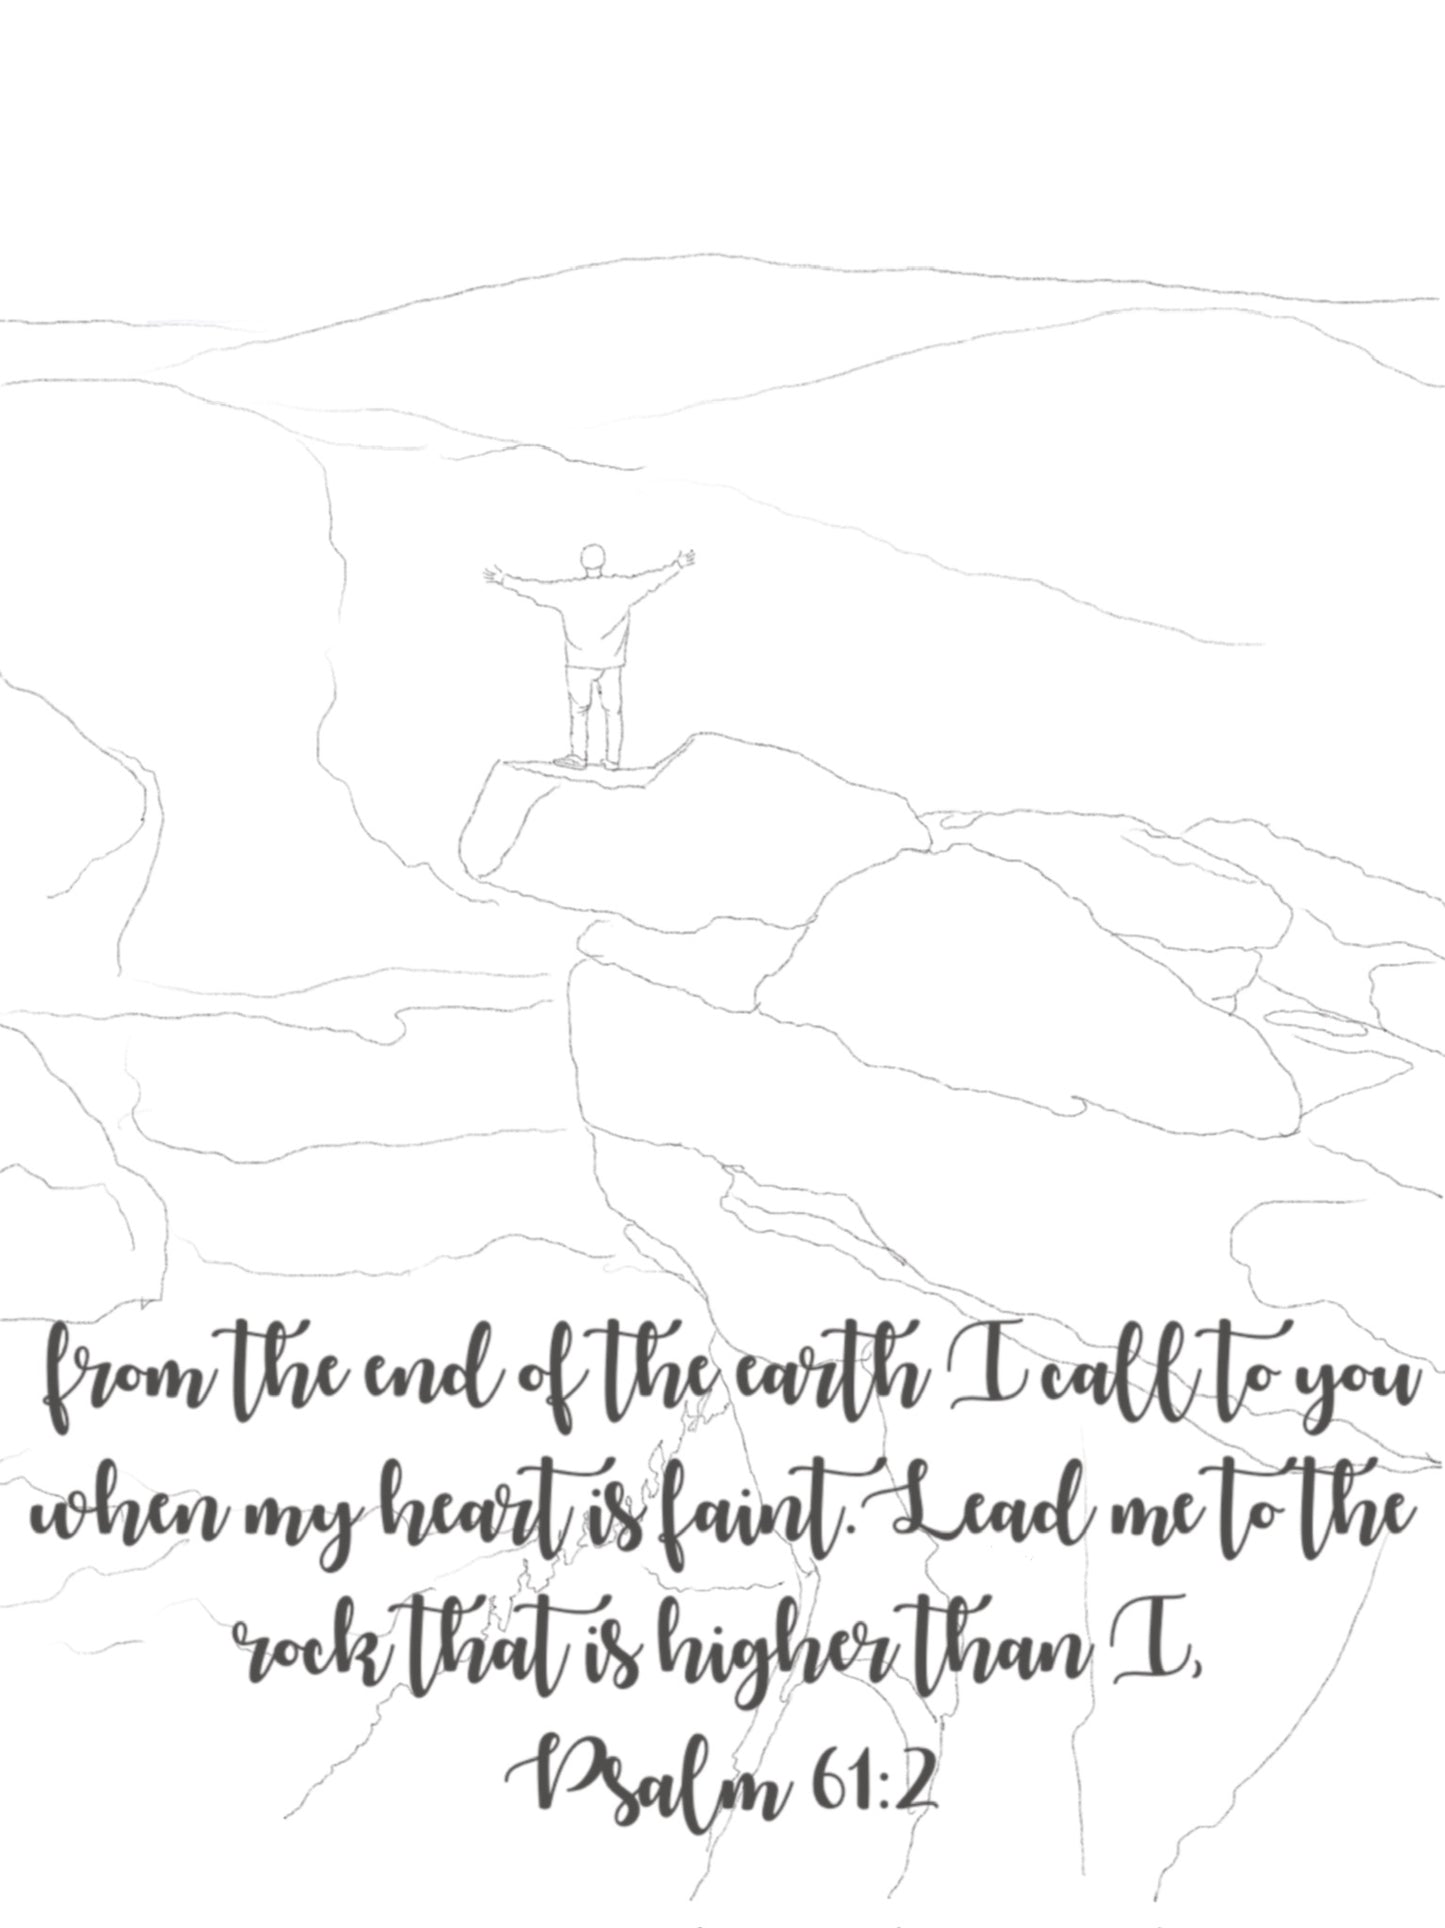 from the end of the earth I call to you
when my heart is faint. Lead me to the
rock that is higher than I,
Psalm 61:2